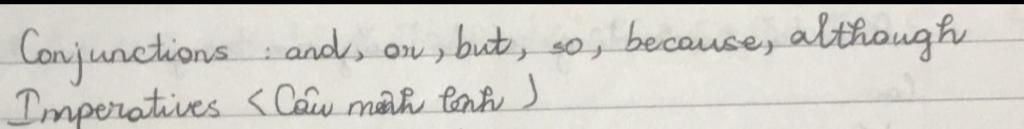 Conjunctions : and, or, but, so, because, although
Imperatives < Câu mệnh lệnh )